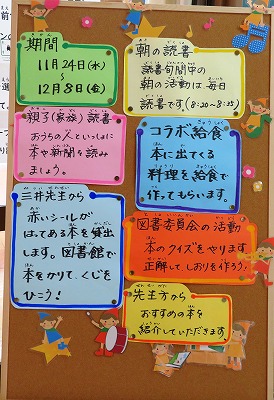 期間
11月24日(水)
~
12月8日(金)
朝の読書
読書旬間中の
朝の活動は、毎日
読書です(8:20~8:35)
親子(家族)読書
おうちの人といっしょに
本や新聞を読み
ましょう。
コラボ給食
本に出てくる
料理を給食で
作ってもらいます。
三井先生から
赤いシールが
はってある本を貸出
します。図書館で
本をかりて、くじを
ひこう!
図書委員会の活動
本のクイズをやります。
正解して しおりを作ろう!
先生方から
おすすめの本を
紹介していただきます。